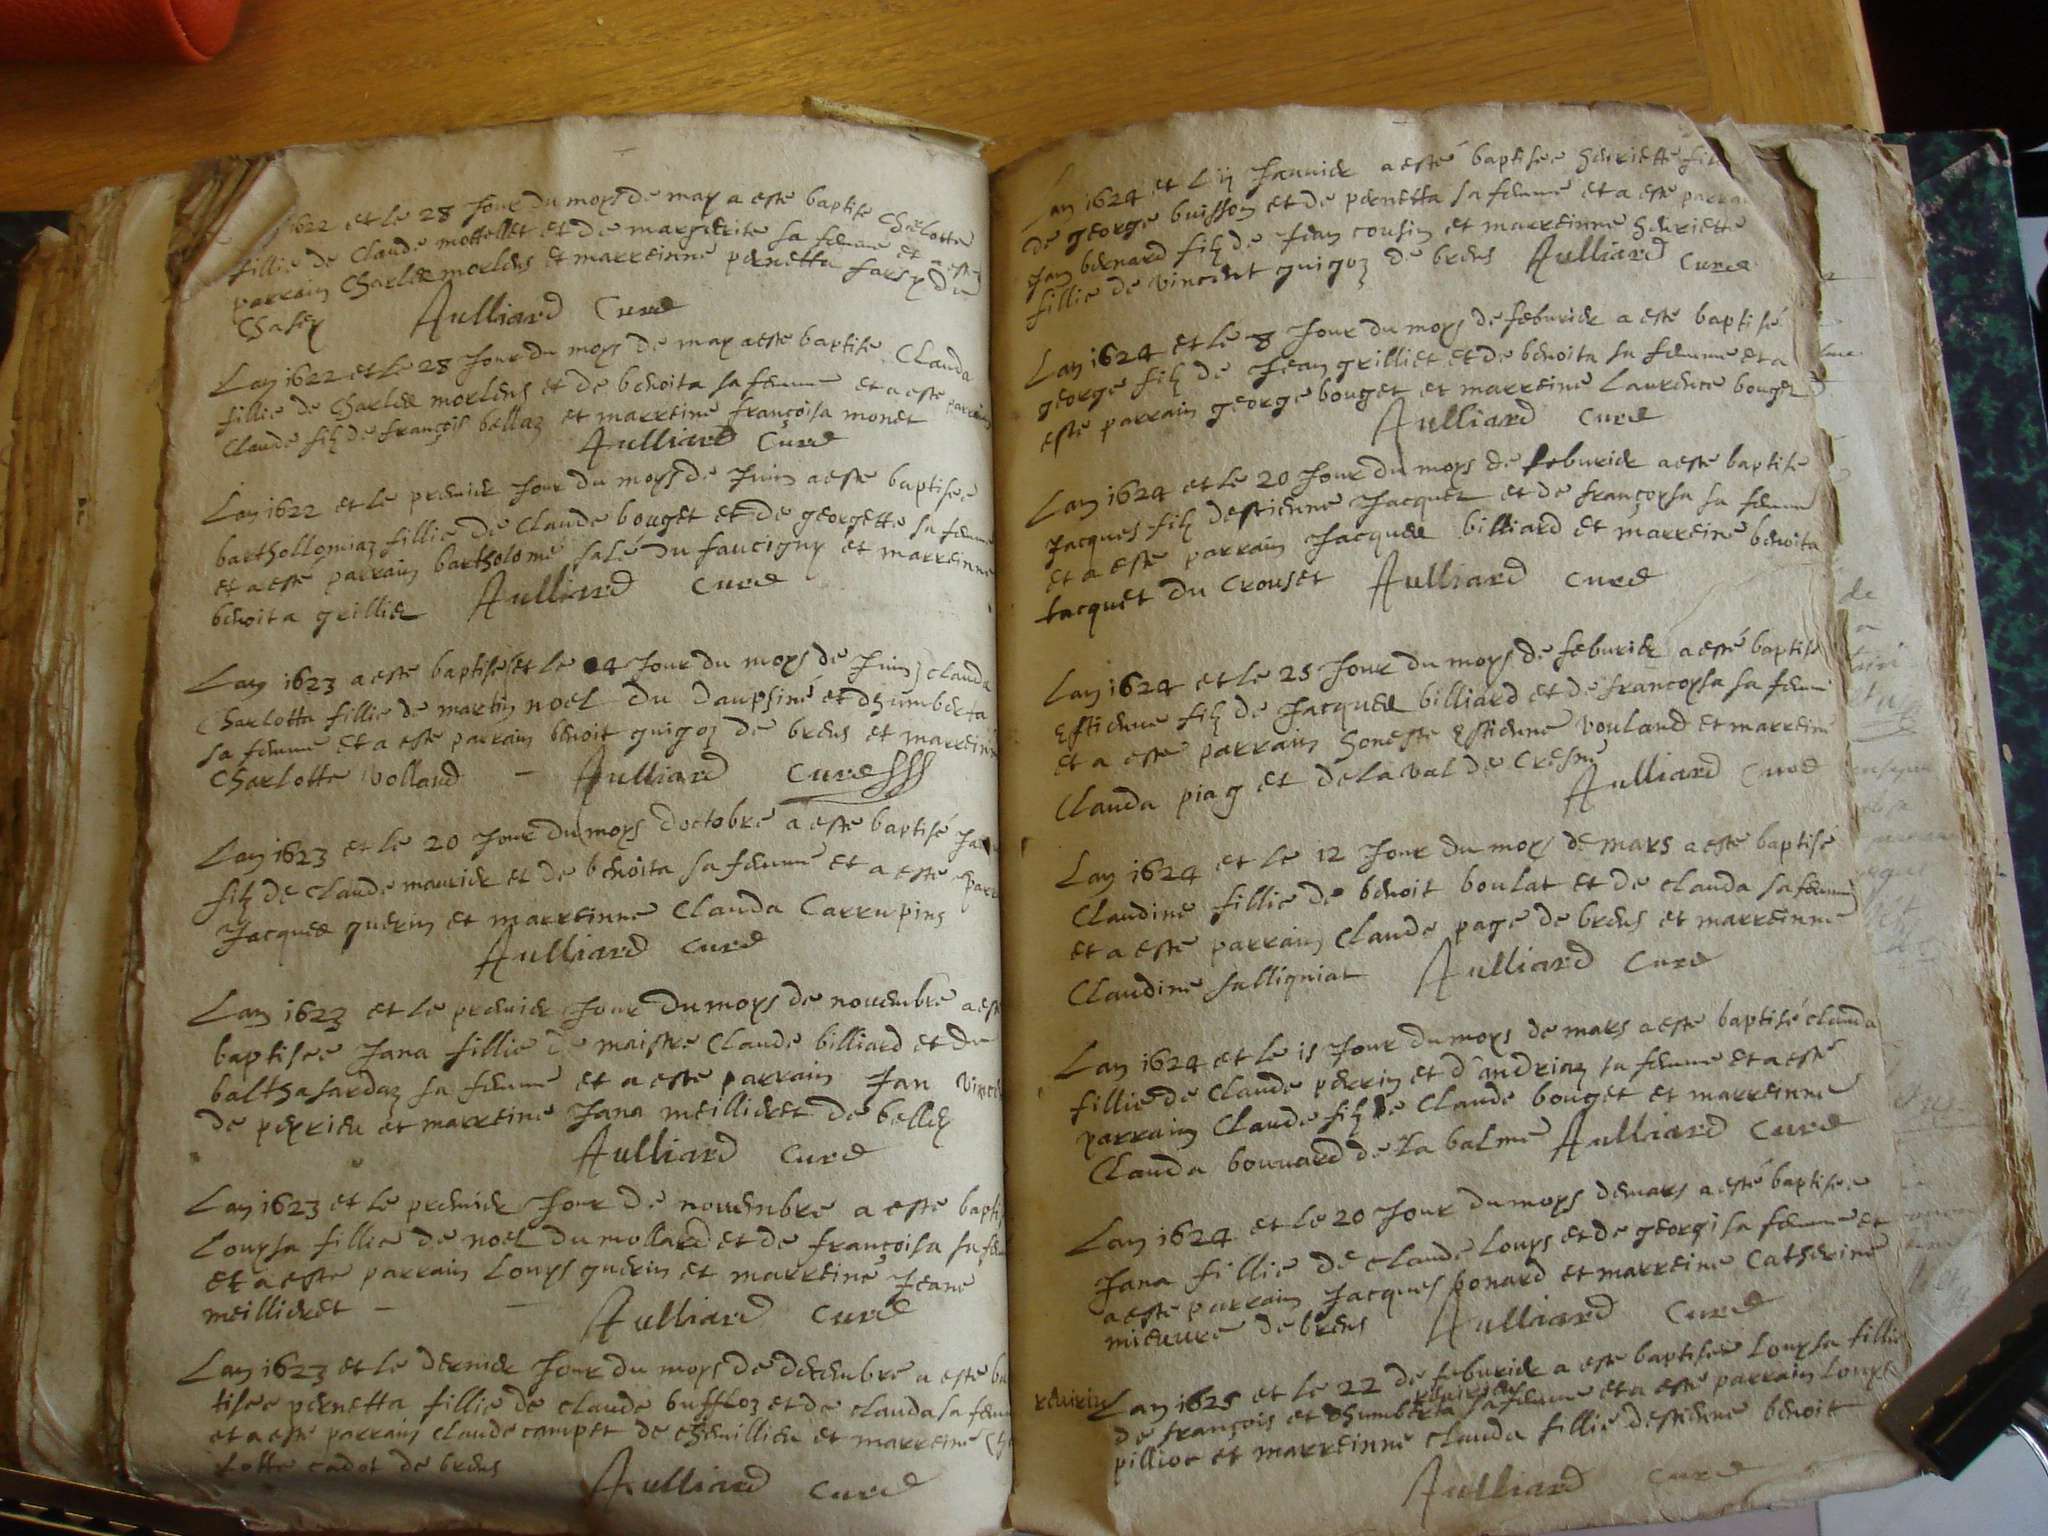 1622 et le 28 Jour du moys de may a este baptise Charlotte
fillie de Claude mottellet et de margerite sa femme et a este
parrain Charles morlens et marreinne pernetta farsy de
Chasey Aulliard Cure
Lan 1622 et le 28 Jour du moys de may a este baptise Clauda
fillie de Charles morlens et de benoita sa femme et a este parrain
Claude filz de françois bellaz et marreine françoisa monet
Aulliard Cure
Lan 1622 et le premier Jour du moys de Juin a este baptisee
barthollomiaz fillie de Claude bouget et de georgette sa femme
et a este parrain bartholome salé du faucigny et marreinne
benoita grillier Aulliard Cure
Lan 1623 a este baptise et le 4 Jour du moys de Juin Clauda
Charlotta fillie de martin noel du dauphiné et dhumberta
sa femme et a este parrain benoit guigoz de brens et marreine
Charlotte volland Aulliard Cure
Lan 1623 et le 20 Jour du moys doctobre a este baptisé
filz de Claude maurier et de benoita sa femme et a este parr
Jacques guerin et marreinne Clauda Carrupins
Aulliard cure
Lan 1623 et le premier Jour du moys de novembre a est
baptisee Jana fillie de maistre Claude billiard et de
balthasardaz sa femme et a este parrain Jan
de peyrieu et marreine Jana meillieret de belley
Aulliard Cure
Lan 1623 et le premier Jour de novembre a este bapti
Louysa fillie de noel du mollard et de françoisa sa fem
et a este parrain Louys guerin et marreine Jeane
meillieret Aulliard Cure
Lan 1623 et le dernier Jour du moys de decembre a este ba
tisee pernetta fillie de claude buffloz et de clauda sa fem
et a este parrain claude campet de chemillieu et marreine Cha
lotte cadot de brens Aulliard Cure
Lan 1624 et L ij Januier a esté baptisee henriette fill
de george buisson et de pernetta sa femme et a este parra
Jan bernard filz de Jean cousin et marreinne henriette
fillie de vincent guigoz de brens Aulliard Cure
Lan 1624 et le 8 Jour du moys de feburier a este baptisé
george filz de Jean grilliet et de benoita sa femme et a
este parrain george bouget et marreine Laurence bouget
Aulliard Cure
Lan 1624 et le 20 Jour du moys de feburier a este baptise
Jacques filz destienne Jacquet et de françoysa sa femme
et a este parrain Jacques billiard et marreine benoita
Jacquet du Crouset Aulliard Cure
Lan 1624 et le 25 Jour du moys de feburier a esté baptisé
Estienne filz de Jacques billiard et de francoysa sa femme
et a este parrain honeste Estienne vouland et marreine
Clauda piag et delaval de Cresm
Aulliard Cure
Lan 1624 et le 12 Jour du moys de mars a este baptisé
Claudine fillie de benoit boulat et de clauda sa femme
et a este parrain Claude page de brens et marreinne
Claudine salligniat Aulliard Cure
Lan 1624 et le 15 Jour du moys de mars a este baptisé clauda
fillie de Claude perrin et d'andriaz sa femme et a esté
parrain Claude filz de Claude bouget et marreinne
Clauda bouuard de la balme Aulliard Cure
Lan 1624 et le 20 Jour du moys de mars a esté baptisee
Jana fillie de claude Louys et de georgi sa femme et
a este parrain Jacques bonard et marreine Catherine
mieuure de brens Aulliard Cure
Lan 1625 et le 22 de feburier a este baptisee Louysa fillie
de françois et dhumberta sa femme et a este parrain Louys
pillioc et marreinne clauda fillie destienne benoit
Aulliard Cure